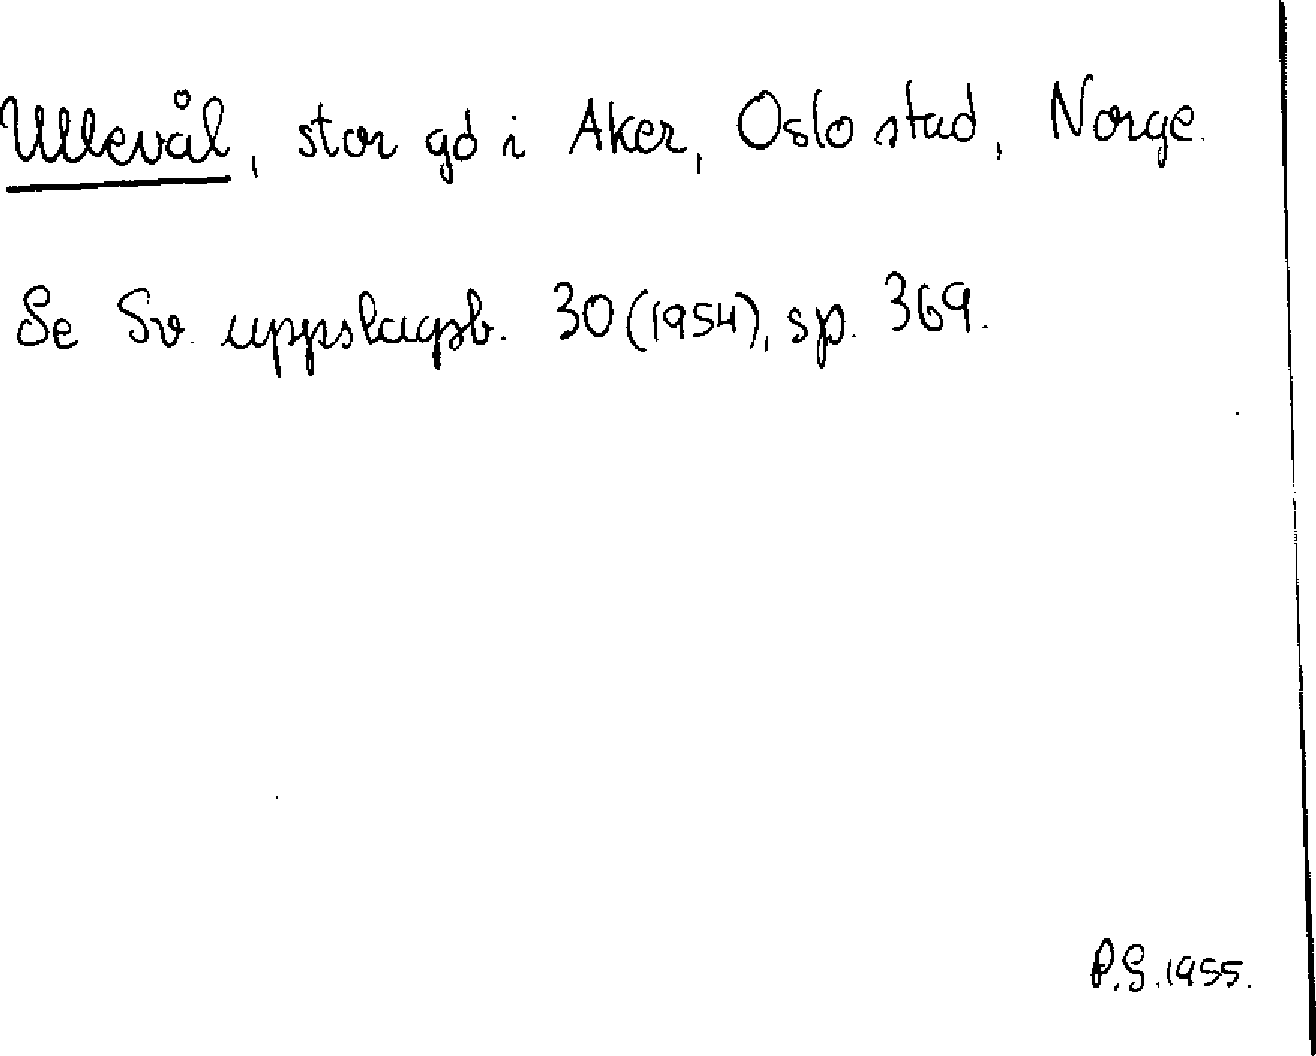 Ullevål, stor gd i Aker, Oslo stad, Norge.
Se Sv. uppslagsb. 30 (1954), sp. 369.
P.G. 1955.